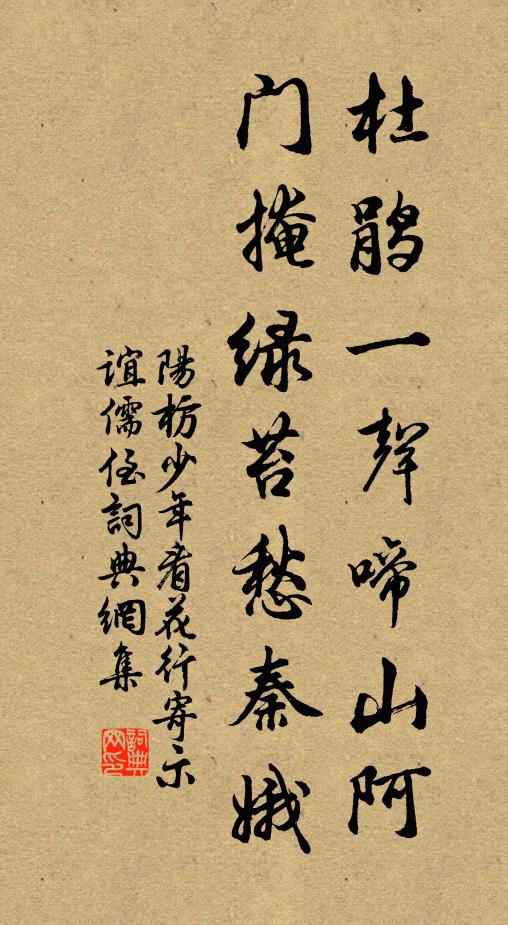 杜鹃一聲啼山阿
门掩绿苔愁秦娥
陽枋少年看花行寄示
誼儒侄詞典網集
詞典
网印